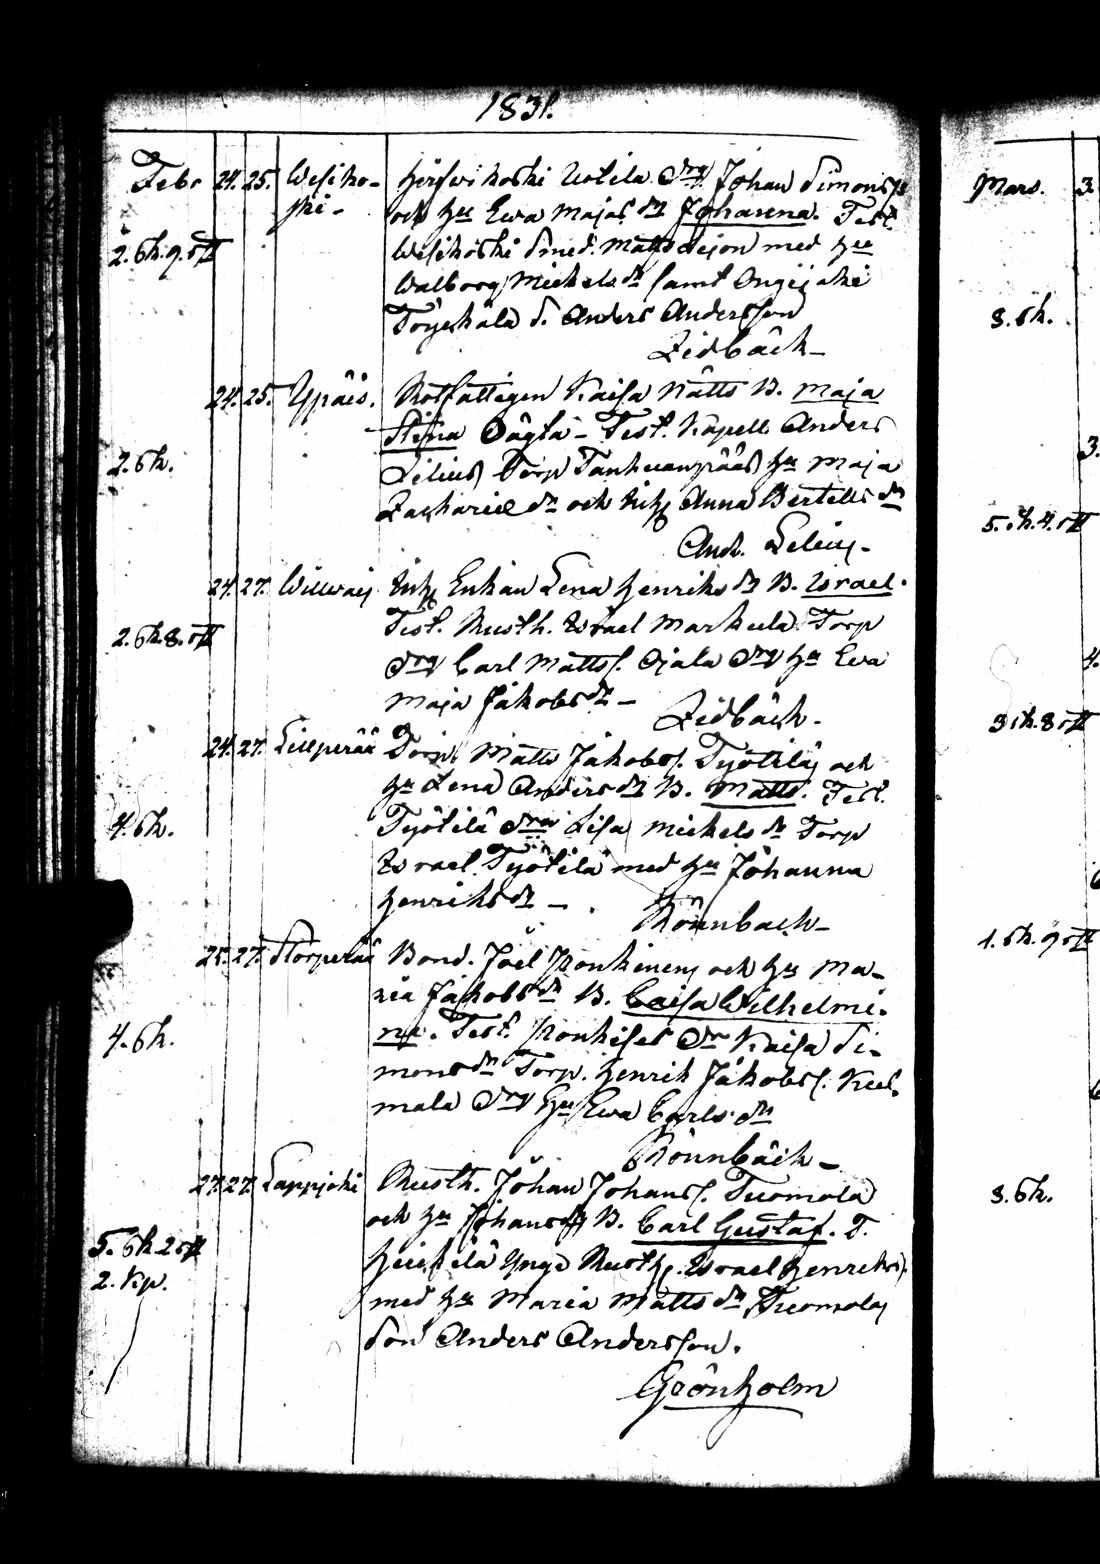 1831.
Febr 24. 25. Wesiko- Hirfwikoski Uotila Drg. Johan Simons
ski - och Hu Ewa Majas dr Johanna. Test.
2. Sk. 9. rß Wesikoski Smed. Matts Lejon med Hu
Walborg Michels dr samt Ongijoki
Töyekälä S. Anders Andersson
Lidbäck -
24. 25. Ypäis. Rotfattigen Kaisa Matts B. Maja
Stina Oägta - Test. Kapell. Anders
2. Sk. Lilius Torp Tanhuanpääs Hu Maja
Zacharie dr och Enk Anna Bertells dr
And. Lilius -
24. 27. Willwais Enk Enkan Lena Henriks dr B. Israel.
2. Sk. 8. rß Test. Rusth. Israel Markula Torp
Drg Carl Matts s. Ojala Drg Hu Ewa
Maja Jakobs dr -
Lidbäck -
24. 27. Lillperää Torp. Matts Jakobs s. Työtilä och
Hu Lena Anders dr B. Matts. Test.
4. Sk. Työtilä Drä Lisa Michels dr Torp
Israel Työtilä med Hu Johanna
Henriks dr -
Rönnback -
25. 27. Storperää Bond. Joel Ponkinen och Hu Ma-
ria Jakobs dr B. Caisa Wilhelmi-
4. Sk. na. Test. Ponkises Dr Kaisa Si-
mons dr Torp. Henrik Jakobs s. Kul-
mala Drg Hu Ewa Carls dr
Rönnbäck -
27. 27. Lappjoki Rusth. Johan Johans s. Tuomola
och Hu Johanna B. Carl Gustaf. T.
5. Sk 2 rß Heikkilä Unge Rusth. Israel Henriks s.
2. Kp. med Hu Maria Matts dr Tuomola
Son Anders Andersson.
Grönholm
Mars. 3.
3. Sk.
3.
5. Sk. 4. rß
4.
3 Sk. 8 rß
1. Sk. 9 rß
3. Sk.